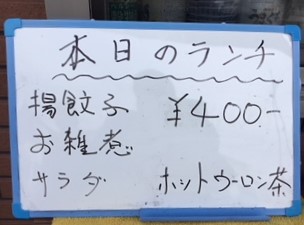 本日のランチ
揚餃子 ¥400-
お雑煮
サラダ ホットウーロン茶